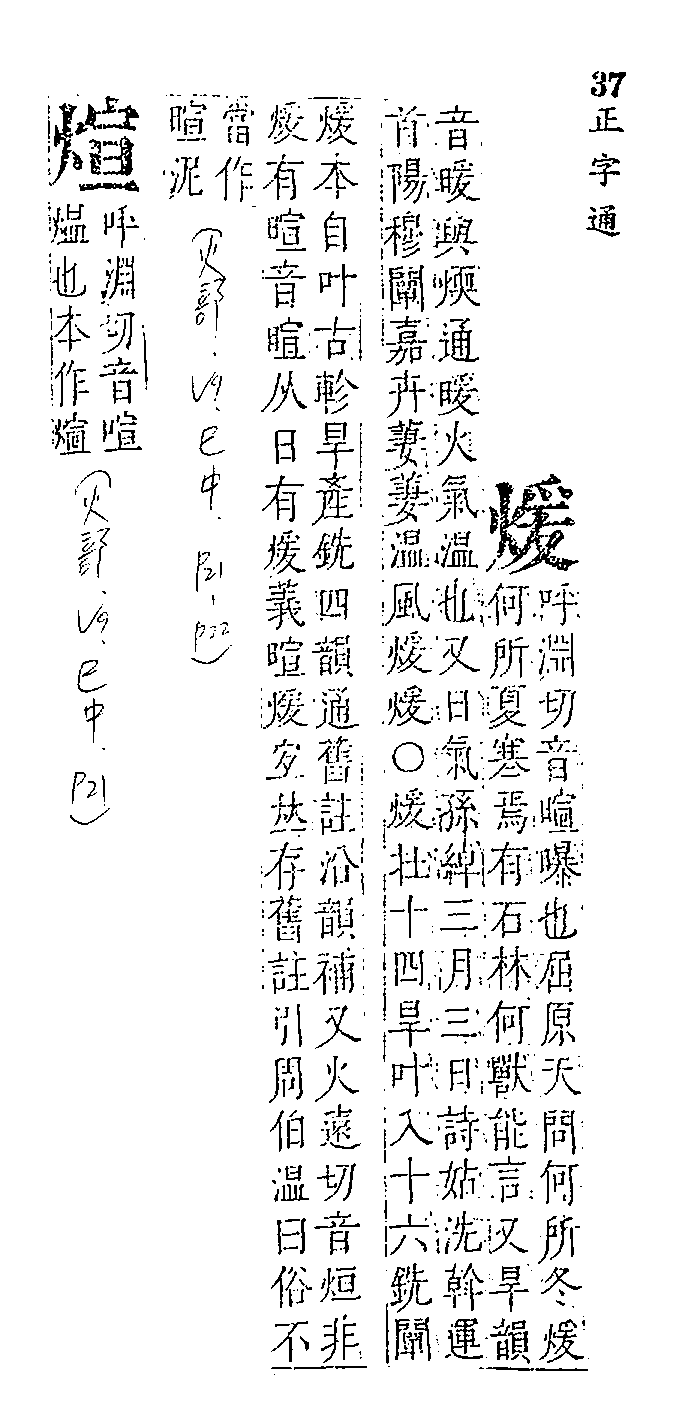 37正字通
煖
呼淵切音暄曝也屈原天問何所冬煖
何所夏寒焉有石林何獸能言又旱韻
音暖與煗通暖火氣溫也又日氣孫綽三月三日詩姑洗斡運
首陽穆闡嘉卉萋萋溫風煖煖○煖壯十四旱叶入十六銑闡
煖本自叶古軫旱產銑四韻通舊註沿韻補又火遠切音烜非
煖有暄音暄从日有煖義暄煖宜𠀤存舊註引周伯溫曰俗不
當作
暄泥
(火部.巳中.P21,P22)
煊
呼淵切音喧
熅也本作煊
(火部.巳中.P21)